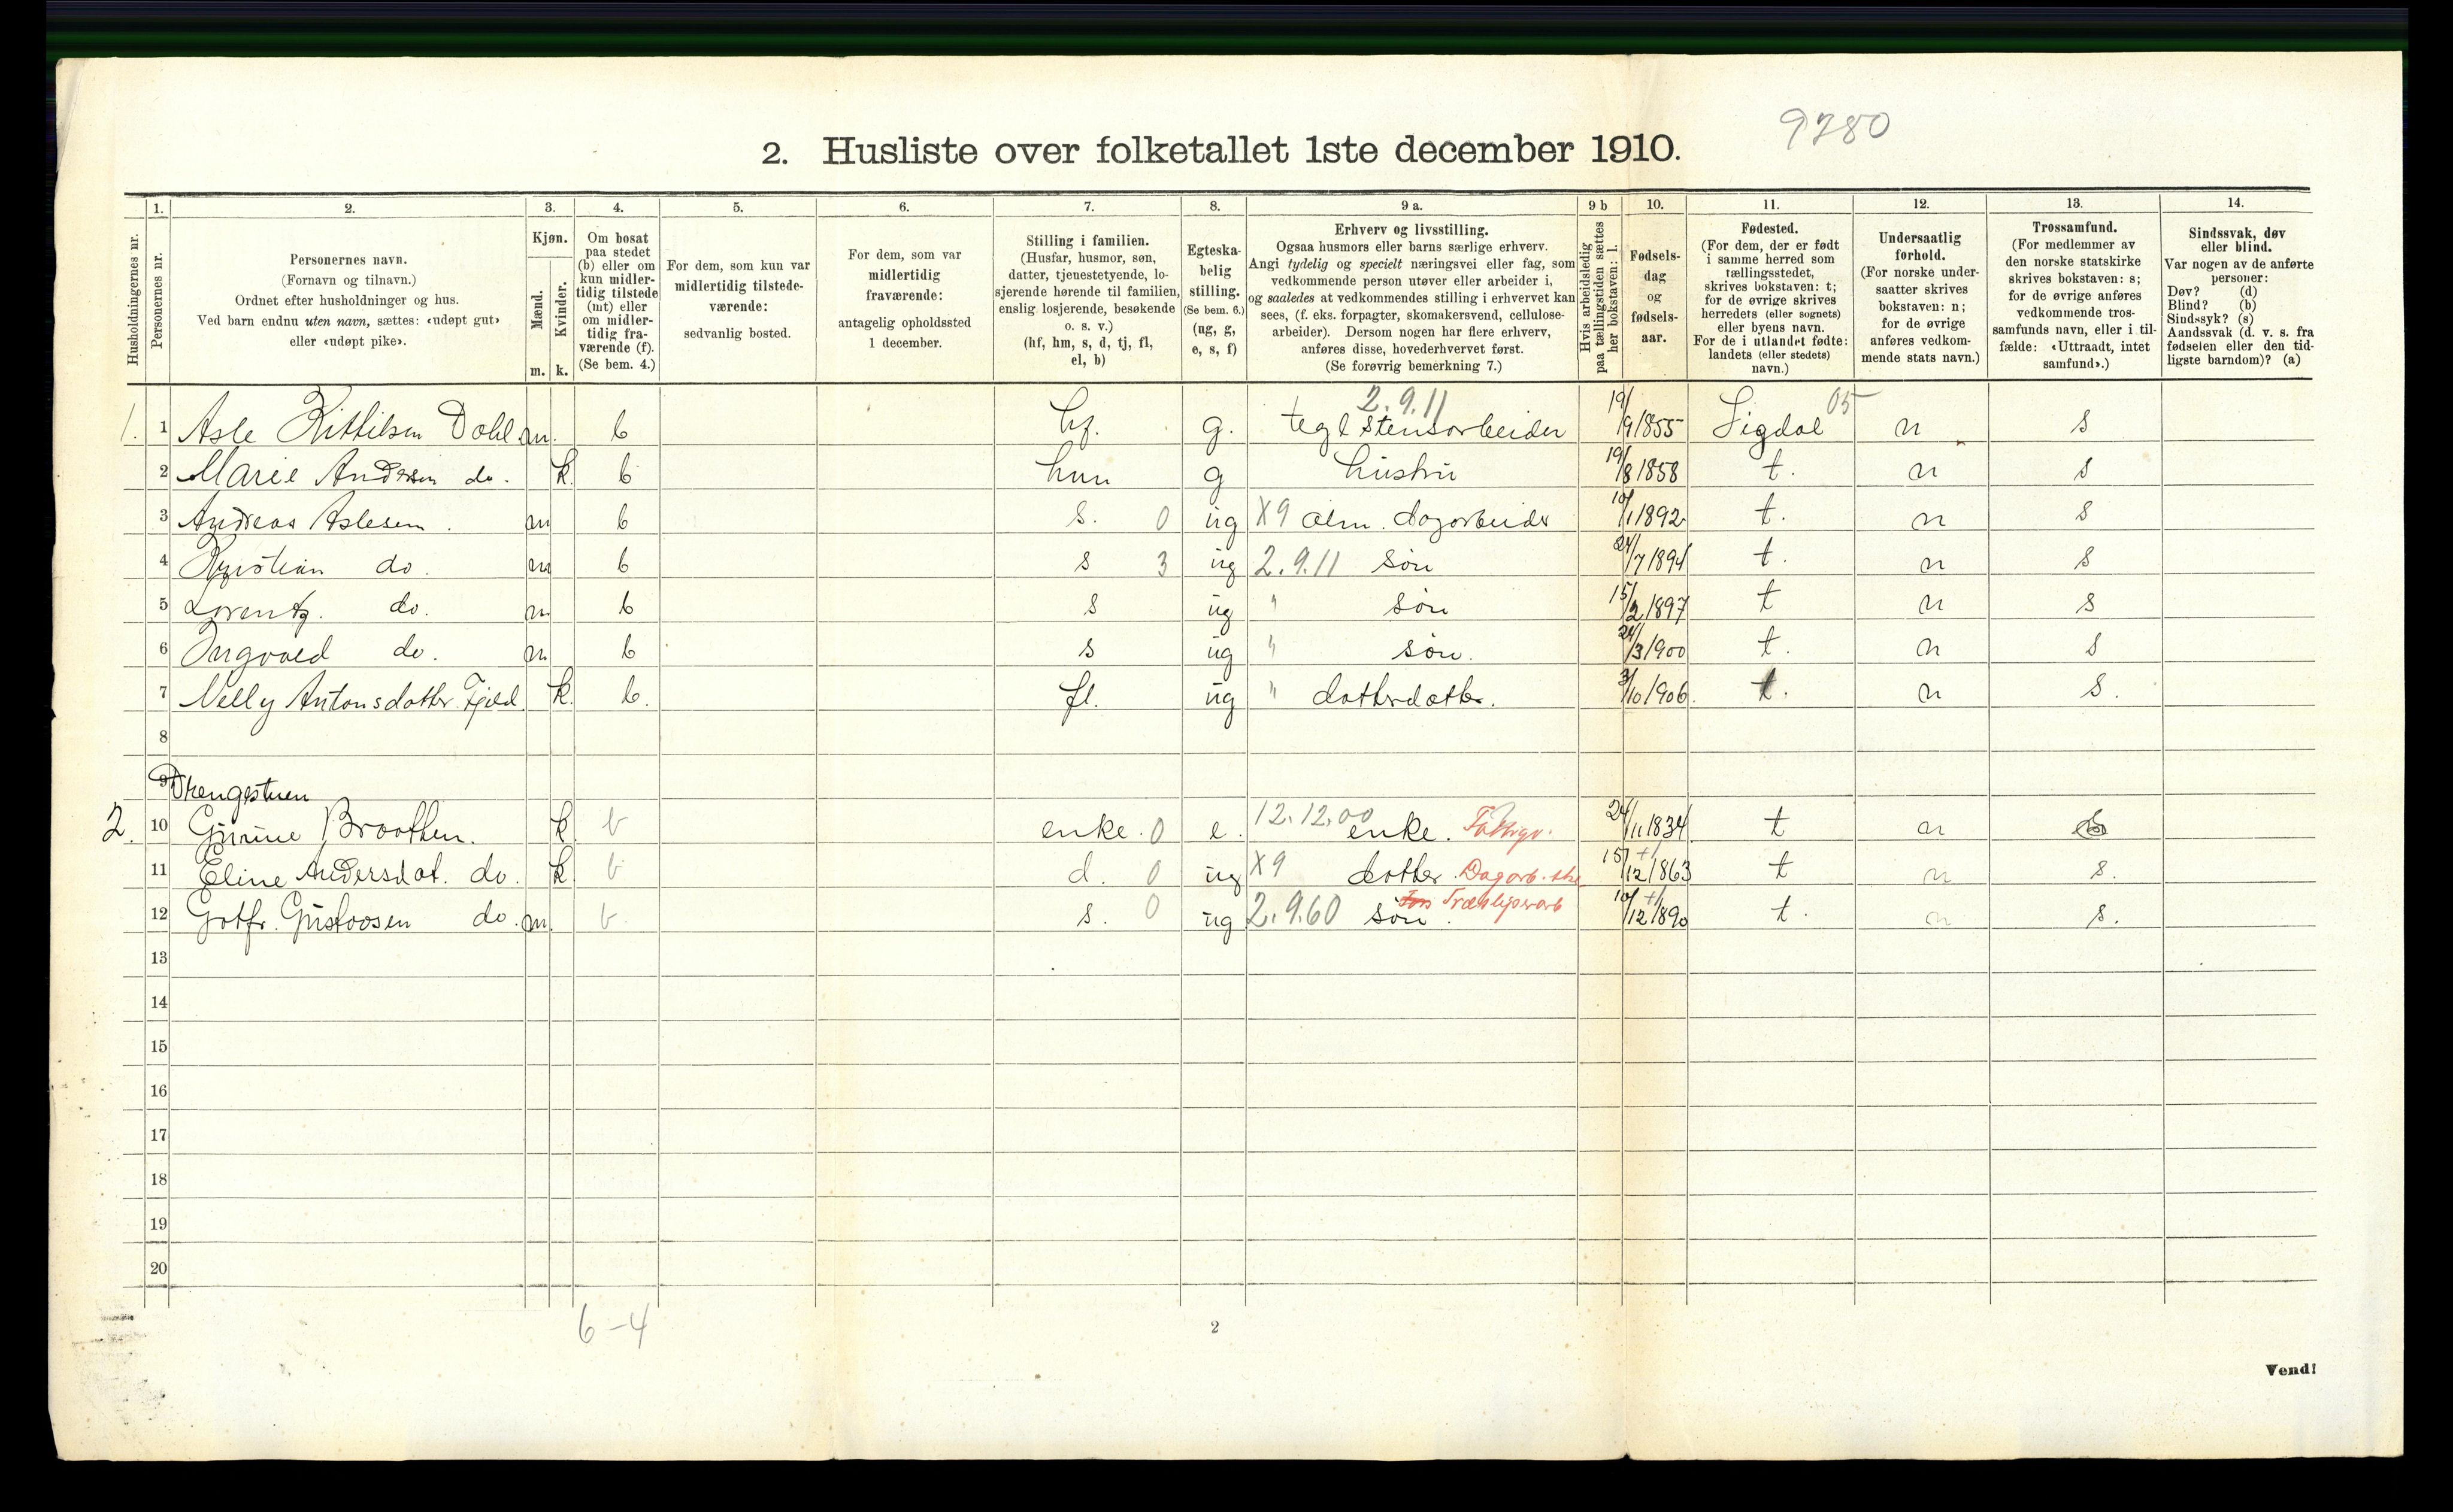 9280
2. Husliste over folketallet 1ste december 1910.
Husholdningernes nr.
1. 2. 3. 4. 5. 6. 7. 8. 9 a. 9 b 10. 11. 12. 13. 14.
Personernes nr.
Personernes navn.
(Fornavn og tilnavn.)
Ordnet efter husholdninger og hus.
Ved barn endnu uten navn, sættes: «udøpt gut»
eller «udøpt pike».
Kjøn.
Mænd.
Kvinder.
m. k.
Om bosat
paa stedet
(b) eller om
kun midler-
tidig tilstede
(mt) eller
om midler-
tidig fra-
værende (f).
(Se bem. 4.)
For dem, som kun var
midlertidig tilstede-
værende:
sedvanlig bosted.
For dem, som var
midlertidig
fraværende:
antagelig opholdssted
1 december.
Stilling i familien.
(Husfar, husmor, søn,
datter, tjenestetyende, lo-
sjerende hørende til familien,
enslig losjerende, besøkende
o. s. v.)
(hf, hm, s, d, tj, fl,
el, b)
Egteska-
belig
stilling.
(Se bem. 6.)
(ug, g,
e, s, f)
Erhverv og livsstilling.
Ogsaa husmors eller barns særlige erhverv.
Angi tydelig og specielt næringsvei eller fag, som
vedkommende person utøver eller arbeider i,
og saaledes at vedkommendes stilling i erhvervet kan
sees, (f. eks. forpagter, skomakersvend, cellulose-
arbeider). Dersom nogen har flere erhverv,
anføres disse, hovederhvervet først.
(Se forøvrig bemerkning 7.)
Hvis arbeidsledig
paa tællingstiden sættes
her bokstaven: l.
Fødsels-
dag
og
fødsels-
aar.
Fødested.
(For dem, der er født
i samme herred som
tællingsstedet,
skrives bokstaven: t;
for de øvrige skrives
herredets (eller sognets)
eller byens navn.
For de i utlandet fødte:
landets (eller stedets)
navn.)
Undersaatlig
forhold.
(For norske under-
saatter skrives
bokstaven: n;
for de øvrige
anføres vedkom-
mende stats navn.)
Trossamfund.
(For medlemmer av
den norske statskirke
skrives bokstaven: s;
for de øvrige anføres
vedkommende tros-
samfunds navn, eller i til-
fælde: «Uttraadt, intet
samfund».)
Sindssvak, døv
eller blind.
Var nogen av de anførte
personer:
Døv? (d)
Blind? (b)
Sindssyk? (s)
Aandssvak (d. v. s. fra
fødselen eller den tid-
ligste barndom)? (a)
2.9.11 05
1. 1 Asle Kittilsen Dahl m. b hf. g. teglstensarbeider 19/9 1855 Sigdal n s
2 Marie Andersen do. k. b hun g hustru 19/8 1858 t. n s
3 Andreas Aslesen. m b s. 0 ug X9 alm. dagarbeider 10/1 1892 t. n s
4 Kristian do. m b s 3 ug 2.9.11 søn 24/7 1894 t. n s
5 Lorentz. do. m b s ug " søn 15/2 1897 t n s
6 Ingvald do. m b s ug " søn. 24/3 1900 t. n s
7 Nelly Antonsdatter Fjeld k. b. fl. ug " datterdatter. 3/10 1906. t. n s.
8
9 Drengestuen
2. 10 Gunine Braathen. k. b enke. 0 e. 12.12.00 enke. Fattigu. 24/11 1834 t n
11 Eline Andersdat. do. k. b d. 0 ug X9 datter. Dagarb. 15/12 1863 t n s.
12 Gotfr. Gustavsen do. m. b. s. 0 ug 2.9.60 søn. Træsliperarb 10/12 1890 t. n s.
13
14
15
16
17
18
19
20
6-4
2
Vend!